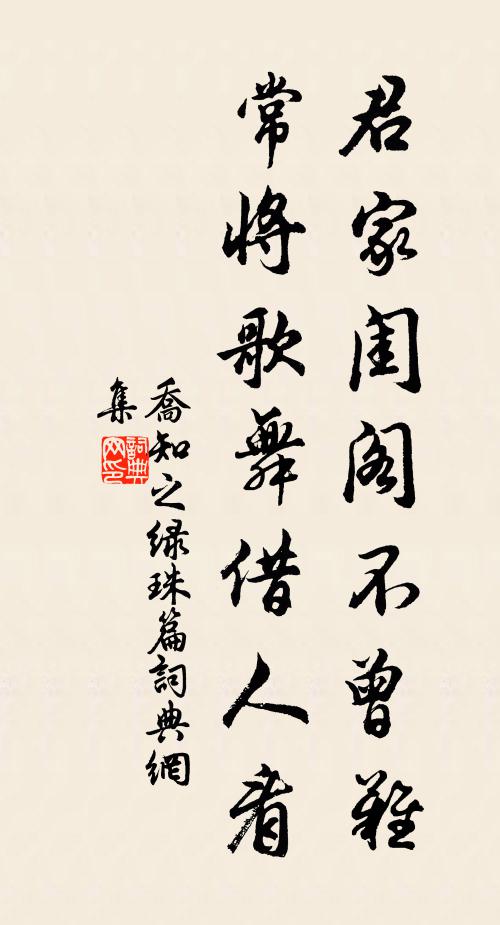 君家閨閣不曾難
常將歌舞借人看
喬知之緑珠篇詞典網
集
詞典網印